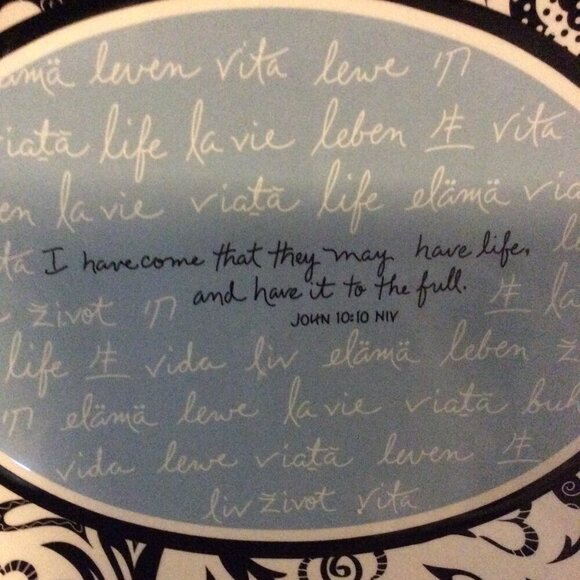 elämä leven vita lewe חי
viaţă life la vie leben 生 vita
la vie viaţă life elämä
I have come that they may have life,
and have it to the full.
život חי 生 la
JOHN 10:10 NIV
life 生 vida liv elämä leben
חי elämä lewe la vie viaţă
vida lewe viaţă leven 生
liv život vita